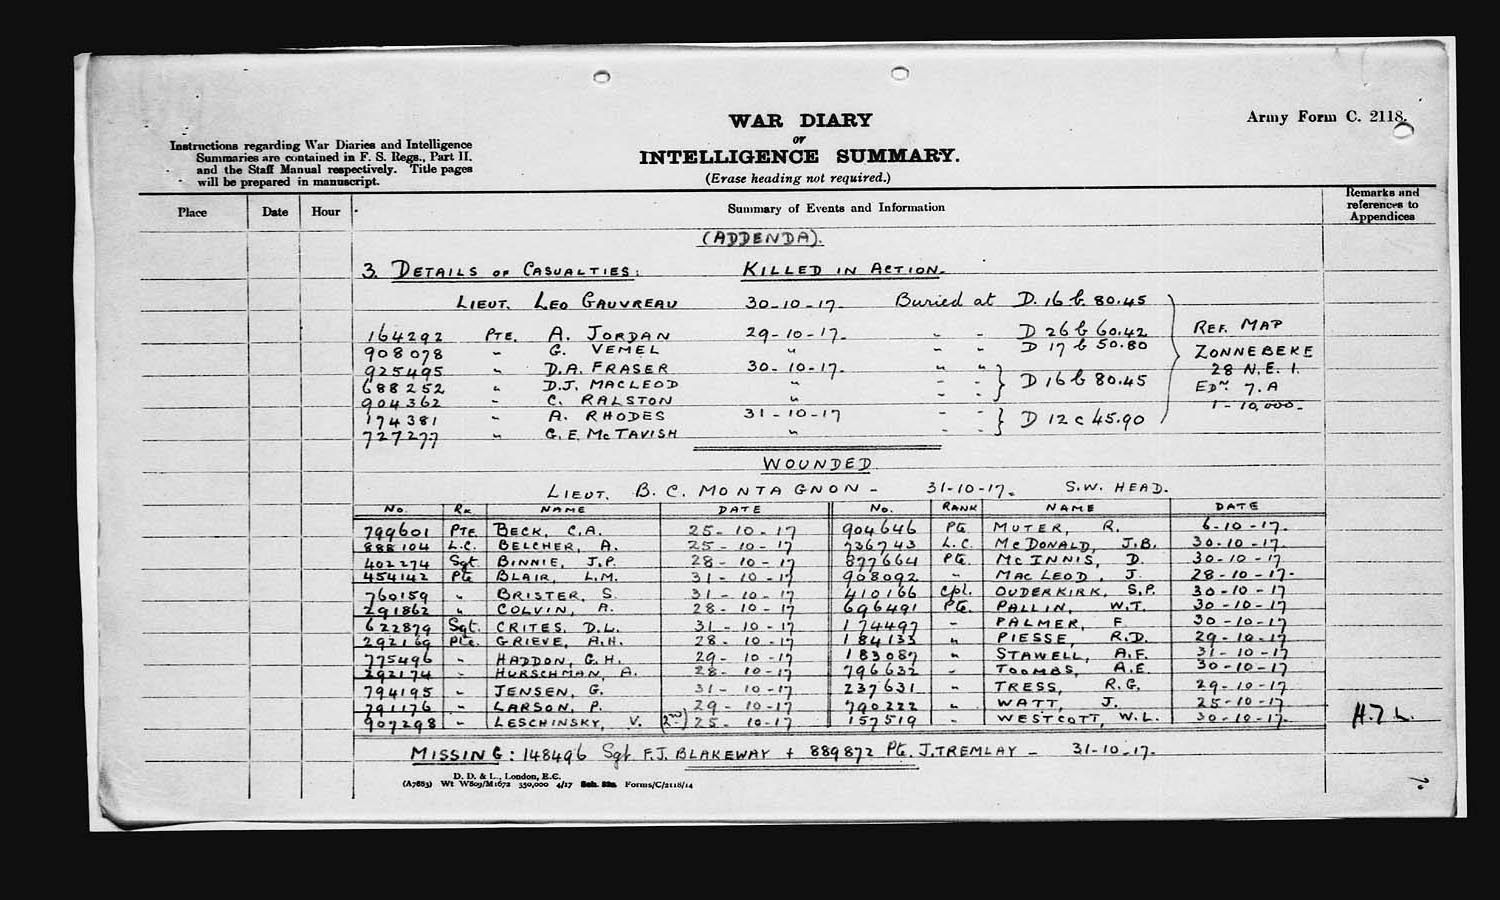 WAR DIARY
or
INTELLIGENCE SUMMARY.
(Erase heading not required.)
Army Form C. 2118.
Instructions regarding War Diaries and Intelligence
Summaries are contained in F. S. Regs., Part II.
and the Staff Manual respectively. Title pages
will be prepared in manuscript.
Place Date Hour Summary of Events and Information Remarks and references to Appendices
(ADDENDA).
3. DETAILS OF CASUALTIES: KILLED IN ACTION.
LIEUT. LEO GAUVREAU 30-10-17- Buried at D.16 b 80.45
164292 PTE. A. JORDAN 29-10-17- " " D 26 b 60.42
908078 " G. VEMEL " " " D 17 b 50.80
925495 " D.A. FRASER 30-10-17- " "
688252 " D.J. MACLEOD " " " } D 16 b 80.45
904362 " C. RALSTON " " "
174381 " A. RHODES 31-10-17 " " } D 12 c 45.90
727277 " G.E. McTAVISH " " "
REF. MAP
ZONNEBEKE
28 N.E. 1.
EDN. 7.A
1-10,000-
WOUNDED
LIEUT. B. C. MONTAGNON - 31-10-17. S.W. HEAD.
No. RK NAME DATE No. RANK NAME DATE
799601 PTE. BECK, C.A. 25-10-17 904646 PTE. MUTER, R. 6-10-17.
888104 L.C. BELCHER, A. 25-10-17 736743 L.C. McDONALD, J.B. 30-10-17-
402274 Sgt. BINNIE, J.P. 28-10-17 877664 Pte. McINNIS, D. 30-10-17
454142 Pte BLAIR, L.M. 31-10-17 908092 " MACLEOD, J. 28-10-17-
760159 " BRISTER, S. 31-10-17 410166 Cpl. OUDERKIRK, S.P. 30-10-17
291862 " COLVIN, A. 28-10-17 696491 Pte. PALLIN, W.T. 30-10-17
622879 Sgt. CRITES, D.L. 31-10-17 174497 " PALMER, F. 30-10-17
292169 Pte. GRIEVE, A.H. 28-10-17 184133 " PIESSE, R.D. 29-10-17
775496 " HADDON, G.H. 29-10-17 183087 " STAWELL, A.F. 31-10-17
292174 " HURSCHMAN, A. 28-10-17 796632 " TOOMBS, A.E. 30-10-17
794195 " JENSEN, G. 31-10-17 237631 " TRESS, R.G. 29-10-17
791176 " LARSON, P. 29-10-17 790222 " WATT, J. 25-10-17
907298 " LESCHINSKY, V. (2nd) 25-10-17 157519 " WESTCOTT, W.L. 30-10-17-
MISSING: 148496 Sgt F.J. BLAKEWAY + 889872 Pte. J. TREMLAY - 31-10-17.
D. D. & L., London, E.C.
(A7883) Wt W809/M1672 350,000 4/17 Sch. 52a Forms/C/2118/14